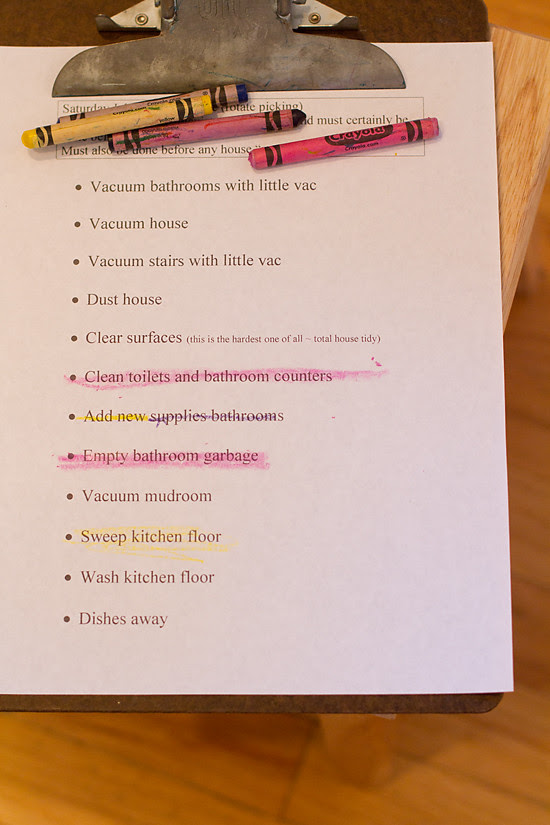 Saturday (rotate picking)
and must certainly be
Must also be done before any house
• Vacuum bathrooms with little vac
• Vacuum house
• Vacuum stairs with little vac
• Dust house
• Clear surfaces (this is the hardest one of all ~ total house tidy)
• Clean toilets and bathroom counters
• Add new supplies bathrooms
• Empty bathroom garbage
• Vacuum mudroom
• Sweep kitchen floor
• Wash kitchen floor
• Dishes away
Crayola
Crayola.com
yellow